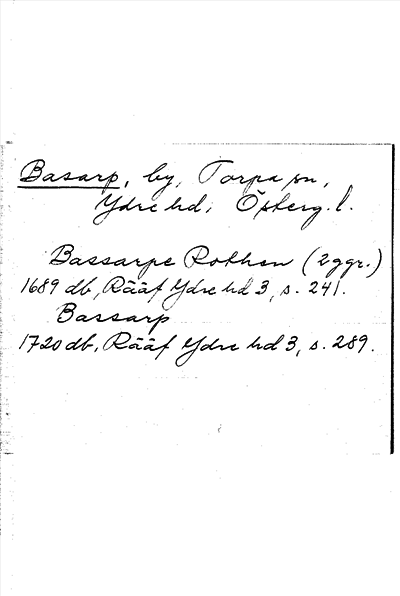 Basarp, by, Torpa sn,
Ydre hd, Österg. l.
Bassarpe Rothen (2ggr.)
1689 db, Rääf Ydre hd 3, s. 241.
Bassarp
1720 db, Rääf Ydre hd 3, s. 289.